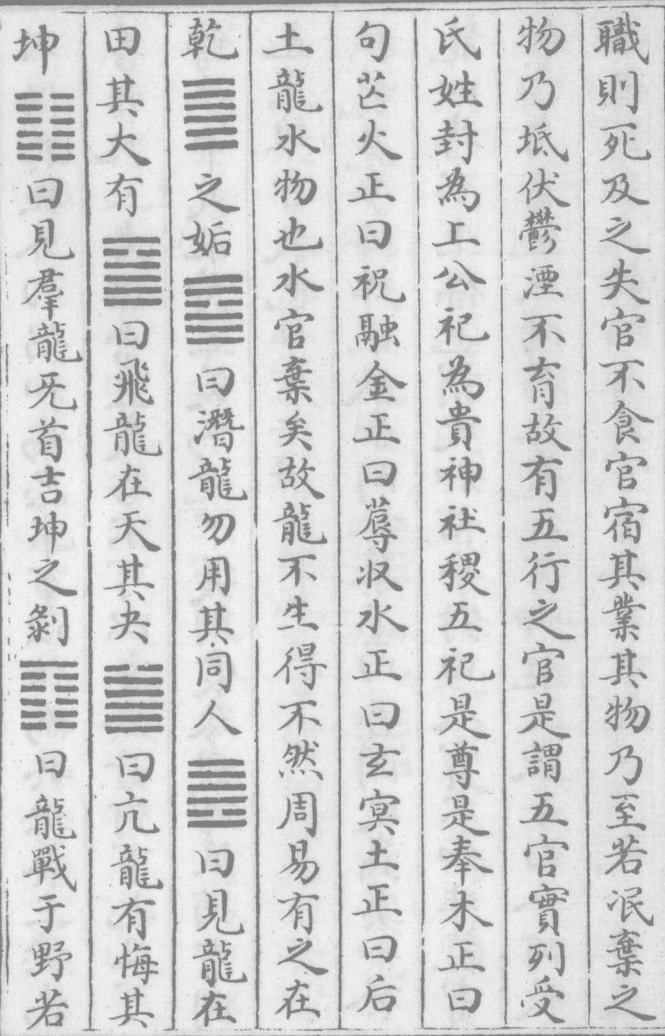 職則死及之失官不食官宿其業其物乃至若泯棄之
物乃坻伏鬱湮不育故有五行之官是謂五官實列受
氏姓封為上公祀為貴神社稷五祀是尊是奉木正曰
句芒火正曰祝融金正曰蓐収水正曰玄冥土正曰后
土龍水物也水官棄矣故龍不生得不然周易有之在
乾䷀之姤䷫曰潛龍勿用其同人䷌曰見龍在
田其大有䷍曰飛龍在天其夬䷪曰亢龍有悔其
坤䷁曰見羣龍旡首吉坤之剝䷖曰龍戰于野若